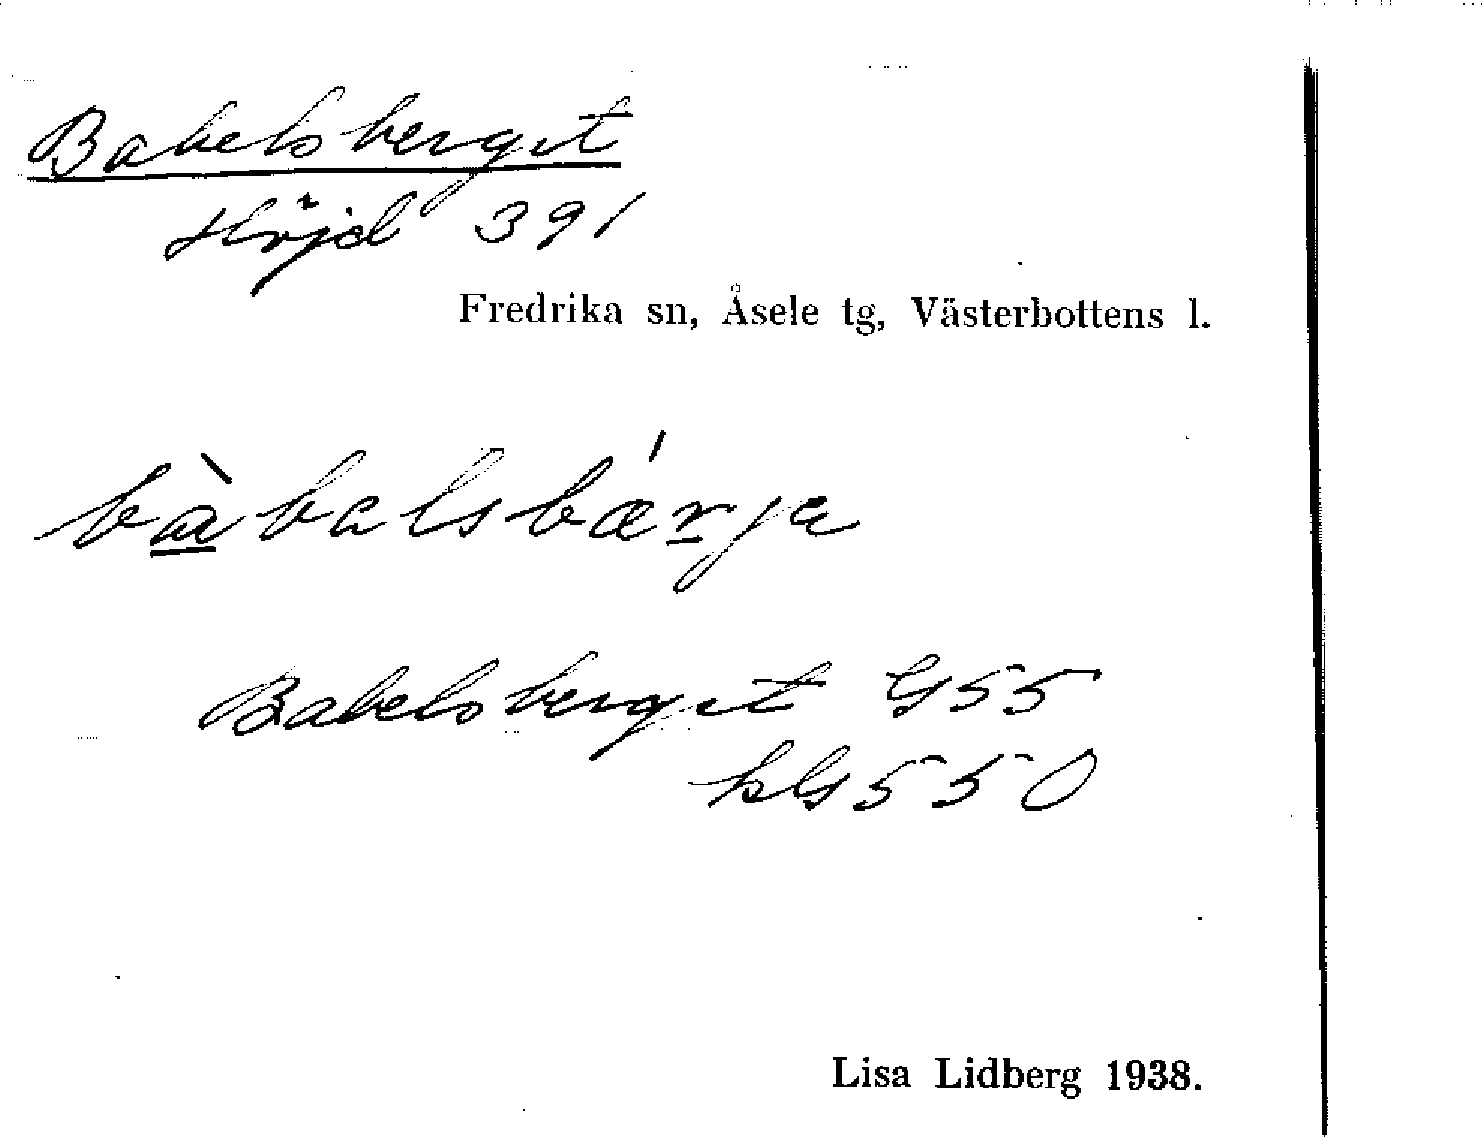 Babelsberget
Höjd 391
Fredrika sn, Åsele tg, Västerbottens l.
bàbalsbǽrja
Babelsberget G55
hG550
Lisa Lidberg 1938.